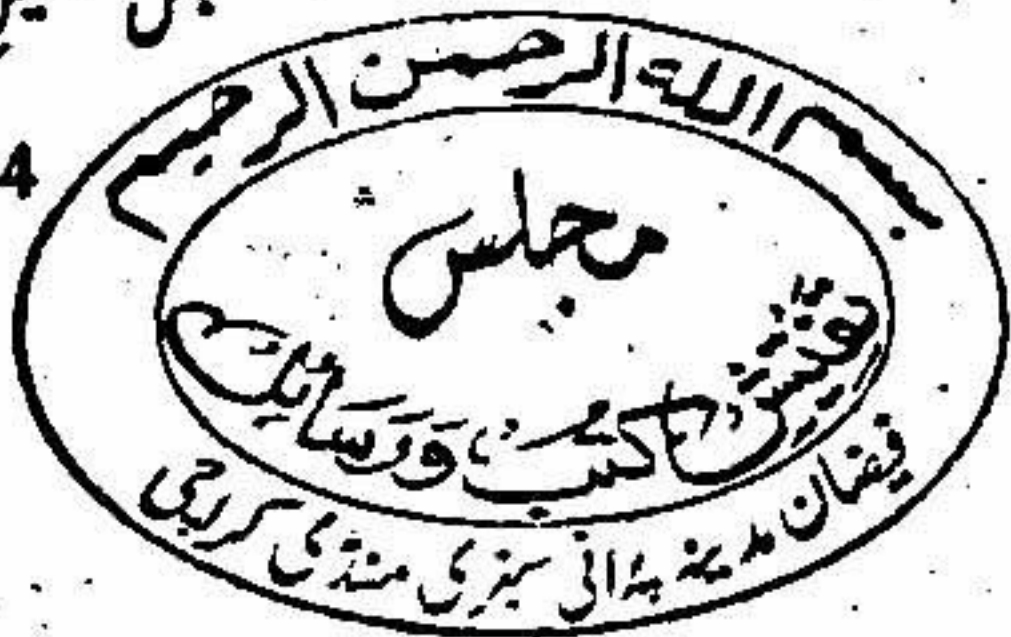 4
بسم الله الرحمن الرحيم
مجلس
تفتیش کتب و رسائل
فیضان مدینہ پرانی سبزی منڈی کراچی